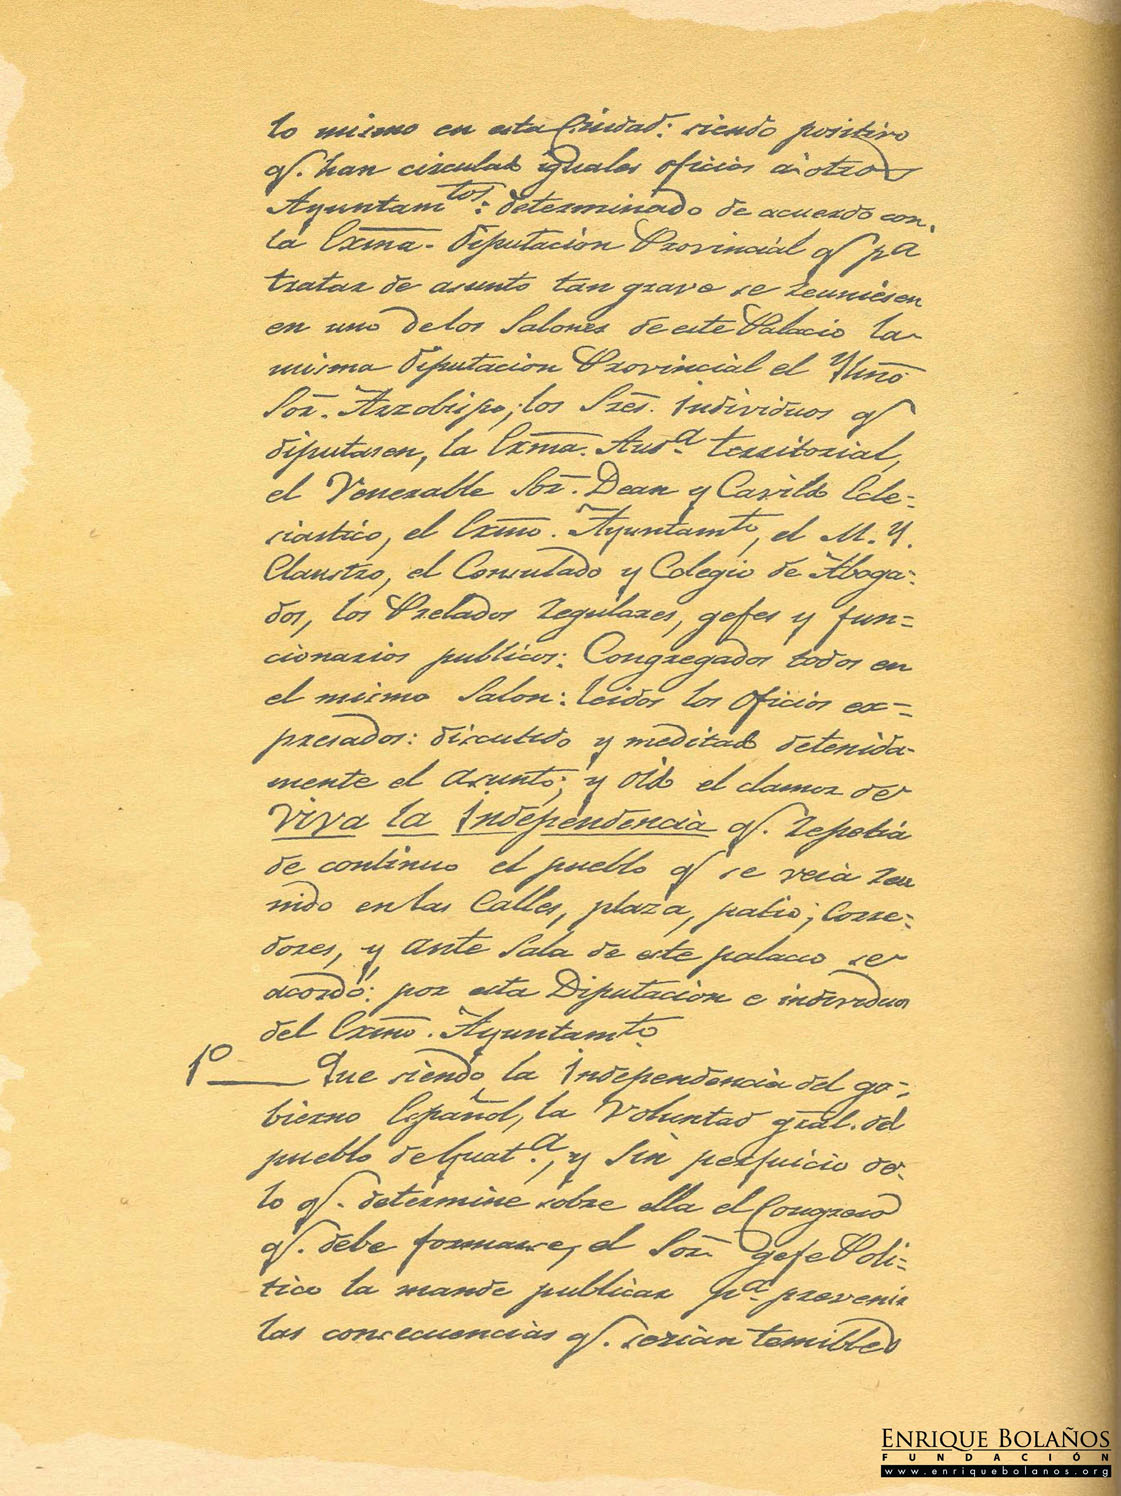 lo mismo en esta Ciudad: siendo positivo
q̃. han circulado iguales oficios à otros
Ayuntamtos: determinado de acuerdo con
la Exma. Diputacion Provincial q̃ pa
tratar de asunto tan grave se reuniesen
en uno delos Salones de este Palacio la
misma Diputacion Provincial el Yllmõ
Sor̃. Arzobispo, los Sres̃. individuos q̃
diputasen, la Exma. Auda. territorial,
el Venerable Sor̃. Dean y Cavildo Ecle=
siastico, el Exmo. Ayuntamto, el M. Y.
Claustro, el Consulado y Colegio de Aboga=
dos, los Prelados regulares, gefes y fun=
cionarios publicos: Congregados todos en
el mismo Salon: leidos los oficios ex=
presados: discutido y meditado detenida
mente el asunto; y oido el clamor de
Viva la Independencia q̃. repetia
de continuo el pueblo q̃ se veia reu
nido en las Calles, plaza, patio, Corre=
dores, y ante Sala de este palacio se
acordó: por esta Diputacion e individuos
del Exmo. Ayuntamto
1º Que siendo la Independencia del go=
bierno Español, la Voluntad gral. del
pueblo de Guata., y Sin perjuicio de
lo q̃. determine sobre ella el Congreso
q̃. debe formarse, el Sor̃. Gefe Poli=
tico la mande publicar pa. prevenir
las consecuencias q̃. serian temibles
ENRIQUE BOLAÑOS
FUNDACIÓN
www.enriquebolanos.org